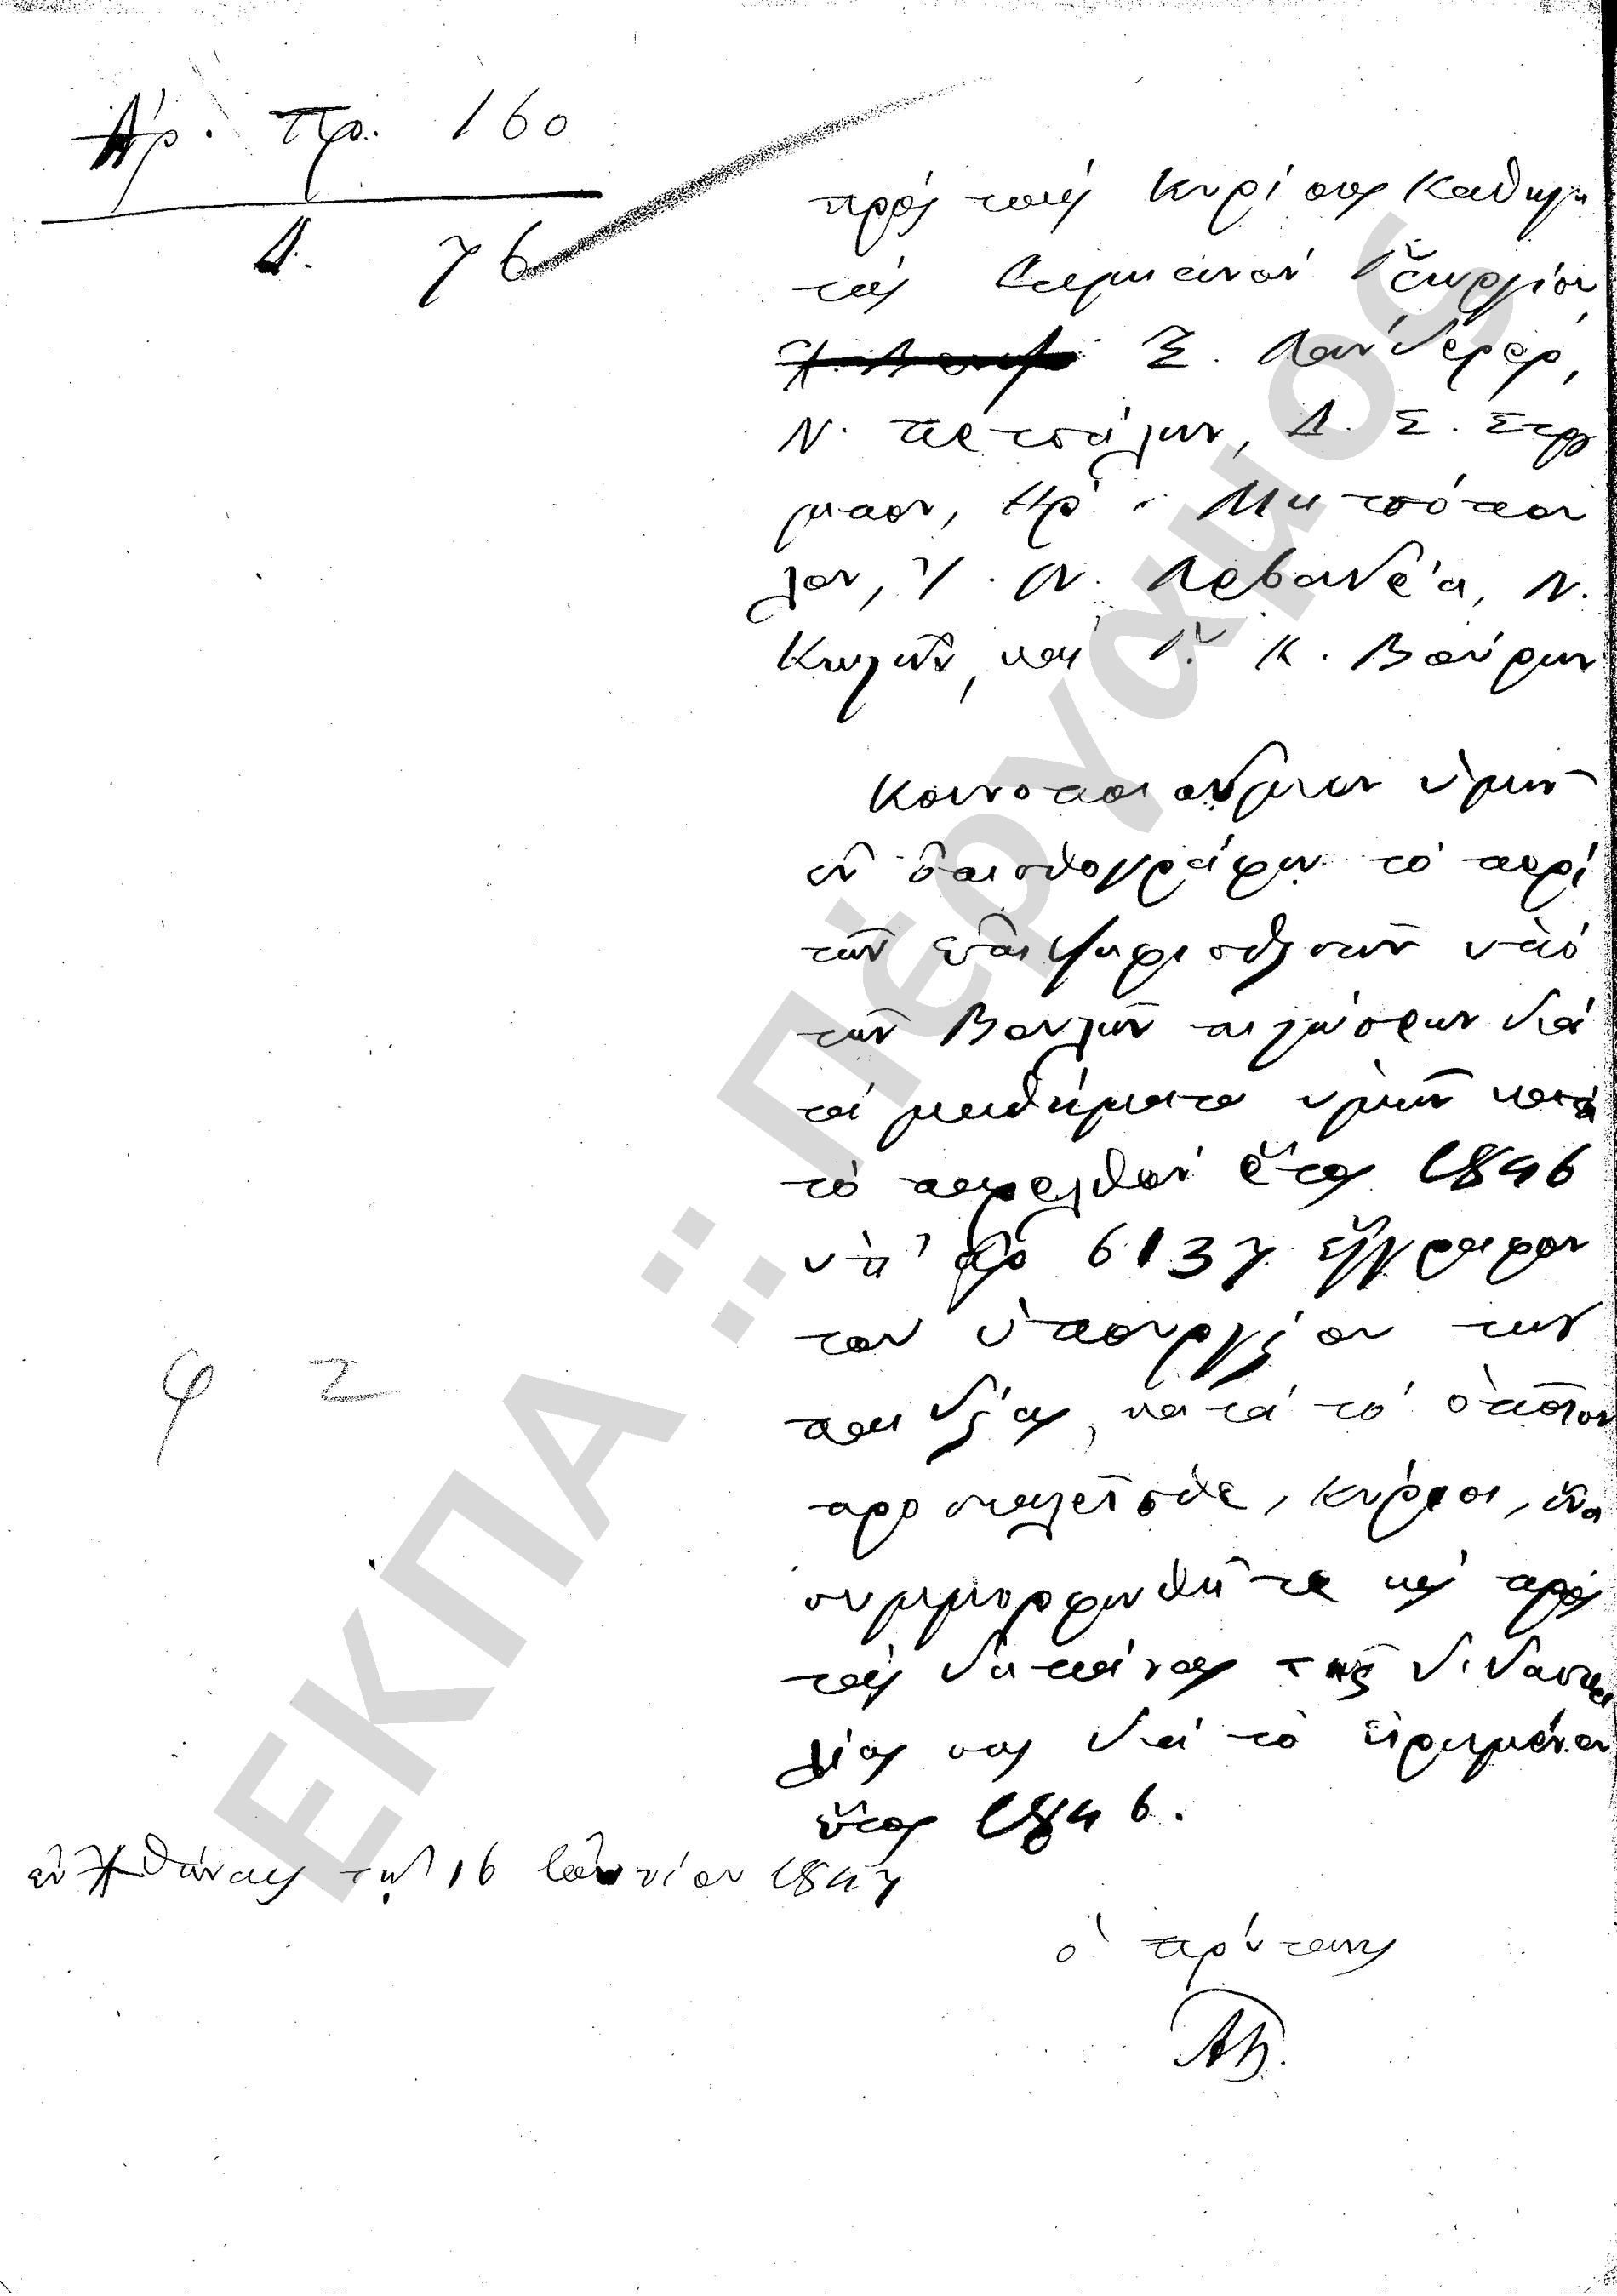 Ἀρ. πρ. 160
Δ. 76
πρὸς τοὺς Κυρίους Καθηγη
τὰς Δαμιανὸν Γεωργίου,
Ξ. Λάνδερερ,
Ν. Πετσάλην, Δ. Σ. Στρ
μπον, Ἡρ. Μητσόπου
λον, Ἰ. Ν. Λεβαδέα, Ν.
Κωστῆν, καὶ Ἰ. Κ. Βούρην
Κοινοποιοῦμεν ὑμῖν
ἐν ὀπισθογράφῳ τὸ περὶ
τῶν ἐπιψηφισθεισῶν ὑπὸ
τῶν Βουλῶν πιστώσεων διὰ
τὰ μαθήματα ὑμῶν κατὰ
τὸ παρελθὸν ἔτος 1846
ὑπ' ἀρ 6137 ἔγγραφον
τοῦ ὑπουργείου τῆς
παιδείας, κατὰ τὸ ὁποῖον
προσκαλεῖσθε, Κύριοι, ἵνα
συμμορφωθῆτε ὡς πρὸς
τὰς δαπάνας τῆς διδασκα
λίας σας διὰ τὸ εἰρημένον
ἔτος 1846.
φ 2
ἐν Ἀθήναις τῇ 16 Ἰουνίου 1847
ὁ πρύτανις
ΕΚΠΑ :: Πέργαμος